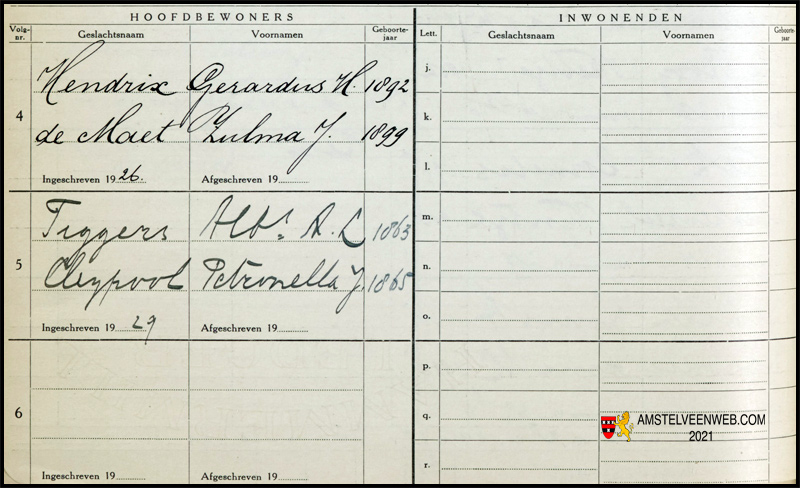 HOOFDBEWONERS
INWONENDEN
Volg-nr.
Geslachtsnaam
Voornamen
Geboorte-jaar
Lett.
Geslachtsnaam
Voornamen
Geboorte-jaar
4
Hendrix Gerardus H. 1892
de Maet Zulma J. 1899
Ingeschreven 1926.
Afgeschreven 19
5
Tiggers Albs A. L 1863
Cleypool Petronella J. 1865
Ingeschreven 1929
Afgeschreven 19
6
Ingeschreven 19
Afgeschreven 19
j.
k.
l.
m.
n.
o.
p.
q.
r.
AMSTELVEENWEB.COM
2021